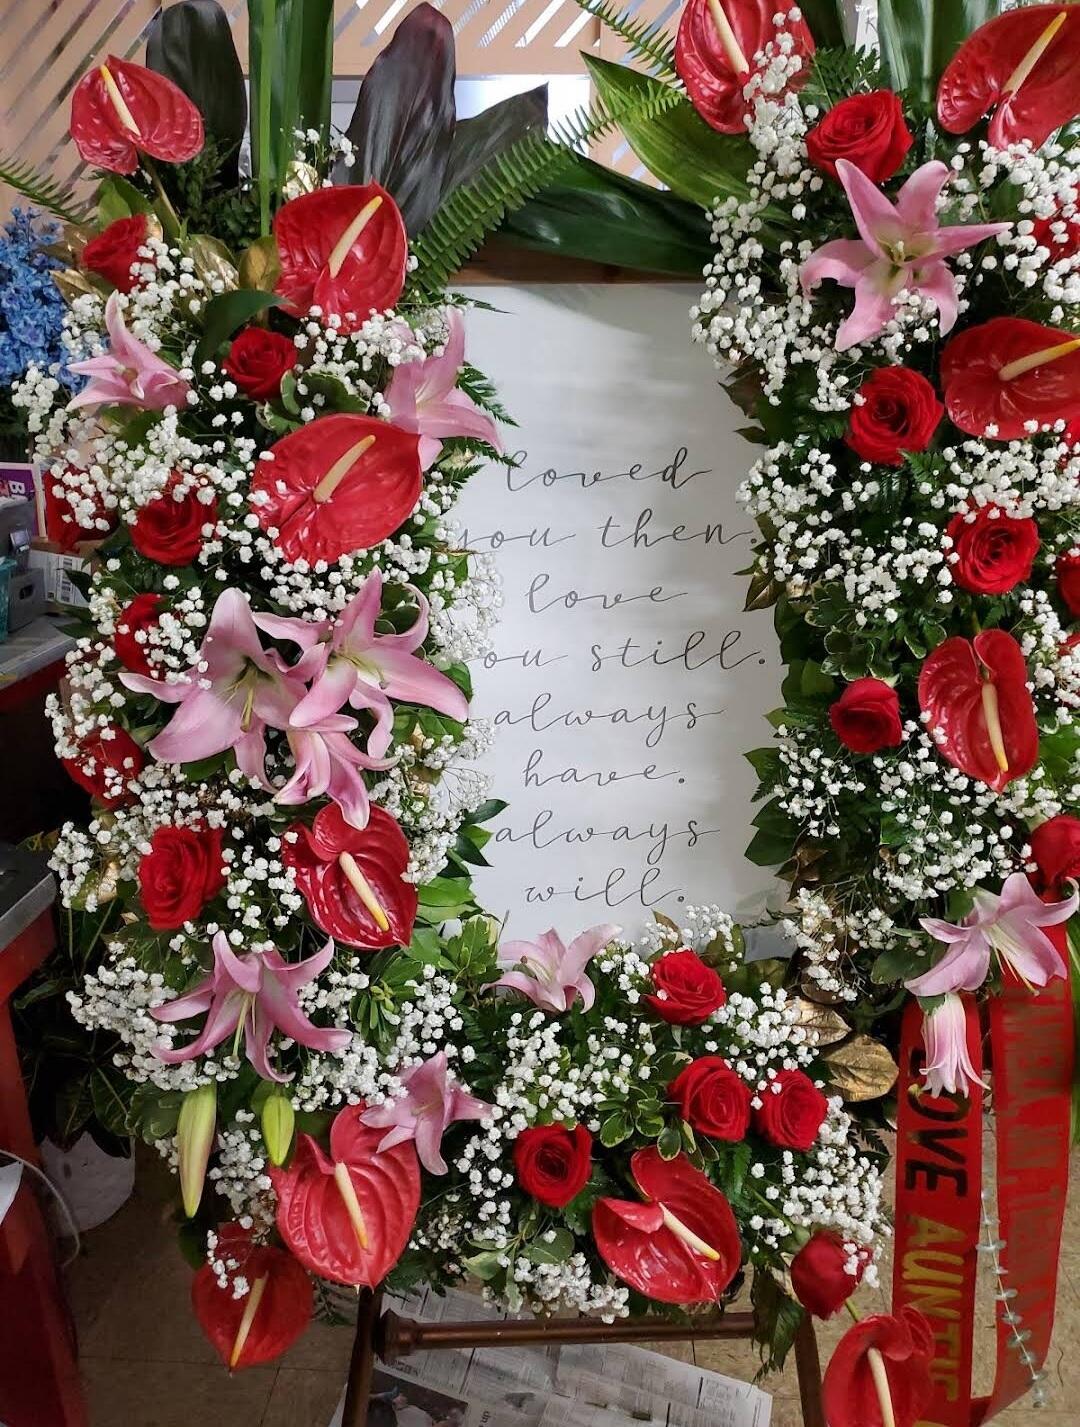 loved
you then.
love
you still.
always
have.
always
will.
LOVE AUNTIE